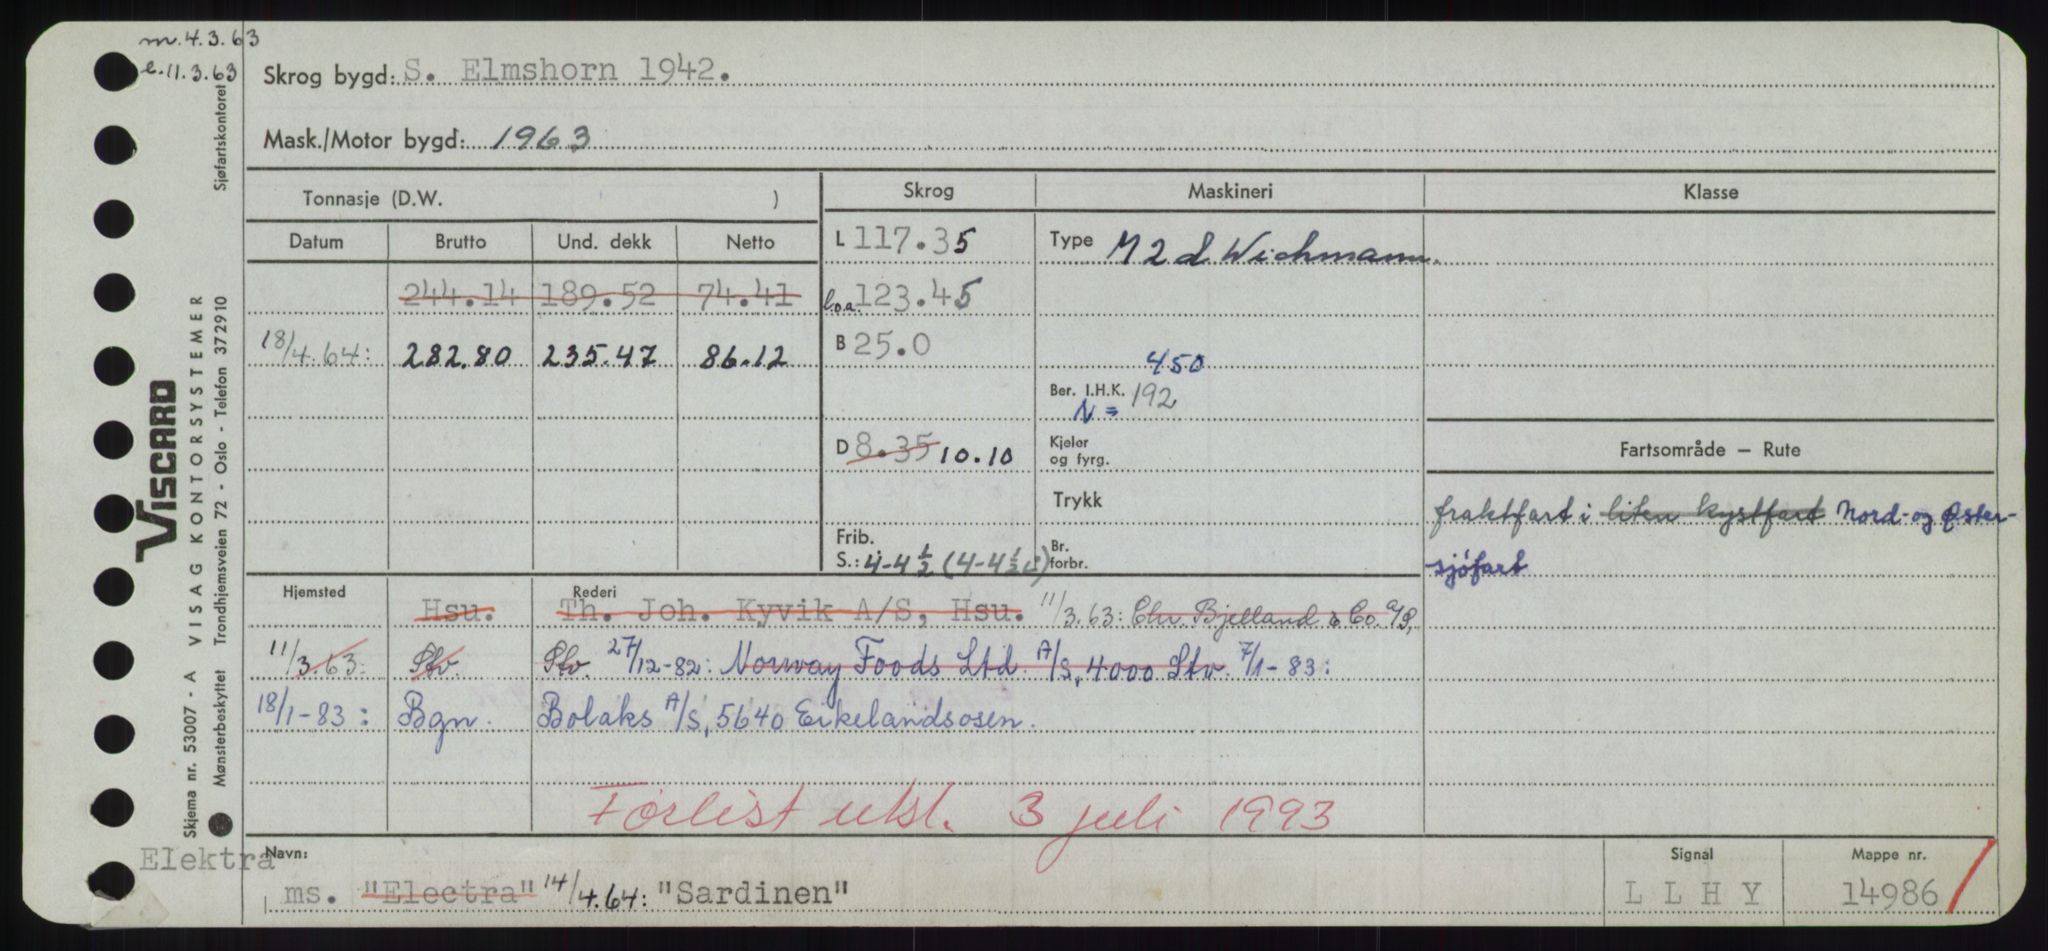 m. 4.3.63
e. 11.3.63
Skrog bygd: S. Elmshorn 1942.
Mask./Motor bygd: 1963
Tonnasje (D.W. )
Skrog
Maskineri
Klasse
Datum Brutto Und. dekk Netto
L 117.35
Type M 2 d Wichmann.
244.14 189.52 74.41
l.o.a. 123.45
18/4.64: 282.80 235.47 86.12
B 25.0
450
Ber. I.H.K. 192
N =
D 8.35 10.10
Kjeler
og fyrg.
Fartsområde — Rute
Trykk
fraktfart i liten kystfart Nord- og Øster-
sjöfart
Frib.
S.: 4-4½ (4-4½")
Br.
forbr.
Hjemsted
Rederi
Hsu. Th. Joh. Kyvik A/S, Hsu. 11/3.63: Chr. Bjelland & Co. A/S,
11/3.63: Stv. Stv. 27/12-82: Norway Foods Ltd. A/S, 4000 Stv. 7/1-83:
18/1-83: Bgn. Bolaks A/S, 5640 Eikelandsosen.
Forlist utsl. 3 juli 1993
Elektra
Navn:
ms. "Electra" 14/4.64: "Sardinen"
Signal
L L H Y
Mappe nr.
14986
Sjøfartskontoret
VISCARD
VISAG KONTORSYSTEMER
Trondhjemsveien 72 - Oslo - Telefon 372910
Skjema nr. 53007 - A
Mønsterbeskyttet